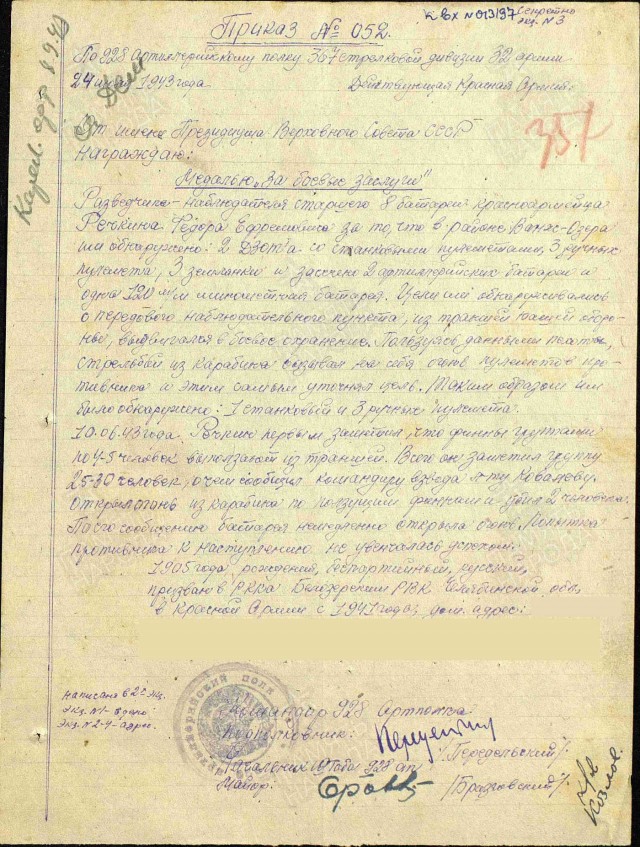 К вх N 013/97
Секретно
экз. N 3
Приказ № 052.
По 928 артиллерийскому полку 367 стрелковой дивизии 32 армии
24 1943 года Действующая Красная Армия.
От имени Президиума Верховного Совета СССР
награждаю:
Медалью „За боевые заслуги"
Разведчика-наблюдателя старшего 8 батареи красноармейца
Речкина Федора Ефремовича за то, что в районе Ванж-Озера
им обнаружено: 2 ДЗОТ'а со станковыми пулеметами, 3 ручных
пулемета, 3 землянки и засечено 2 артиллерийских батареи и
одна 120 м/м минометная батарея. Цели им обнаруживались
с передового наблюдательного пункта, из траншей нашей оборо-
ны, выдвигался в боевое охранение. Пользуясь данными пехоты,
стрельбой из карабина вызывал на себя огонь пулеметов про-
тивника и этим самым уточнял цель. Таким образом им
было обнаружено: 1 станковый и 3 ручных пулемета.
10.06.43 года Речкин первым заметил, что финны группами
по 4-5 человек выползают из траншей. Всего он заметил группу
25-30 человек, о чем сообщил командиру взвода л-ту Ковалеву.
Открыл огонь из карабина по ползущим финнам и убил 2 человека.
По его сообщению батарея немедленно открыла огонь. Попытка
противника к наступлению не увенчалась успехом.
1905 года рождения, беспартийный, русский,
призван в РККА Белозерским РВК Челябинской обл,
в Красной Армии с 1941 года, дом. адрес:
Написано в 2х экз.
Экз. N 1 -
Экз. N 2 -
артиллерийский полк
Командир 928 артполка
Подполковник: /Передельский/.
Начальник штаба 928 ап
Майор: /Бразговский/.
Козлов.